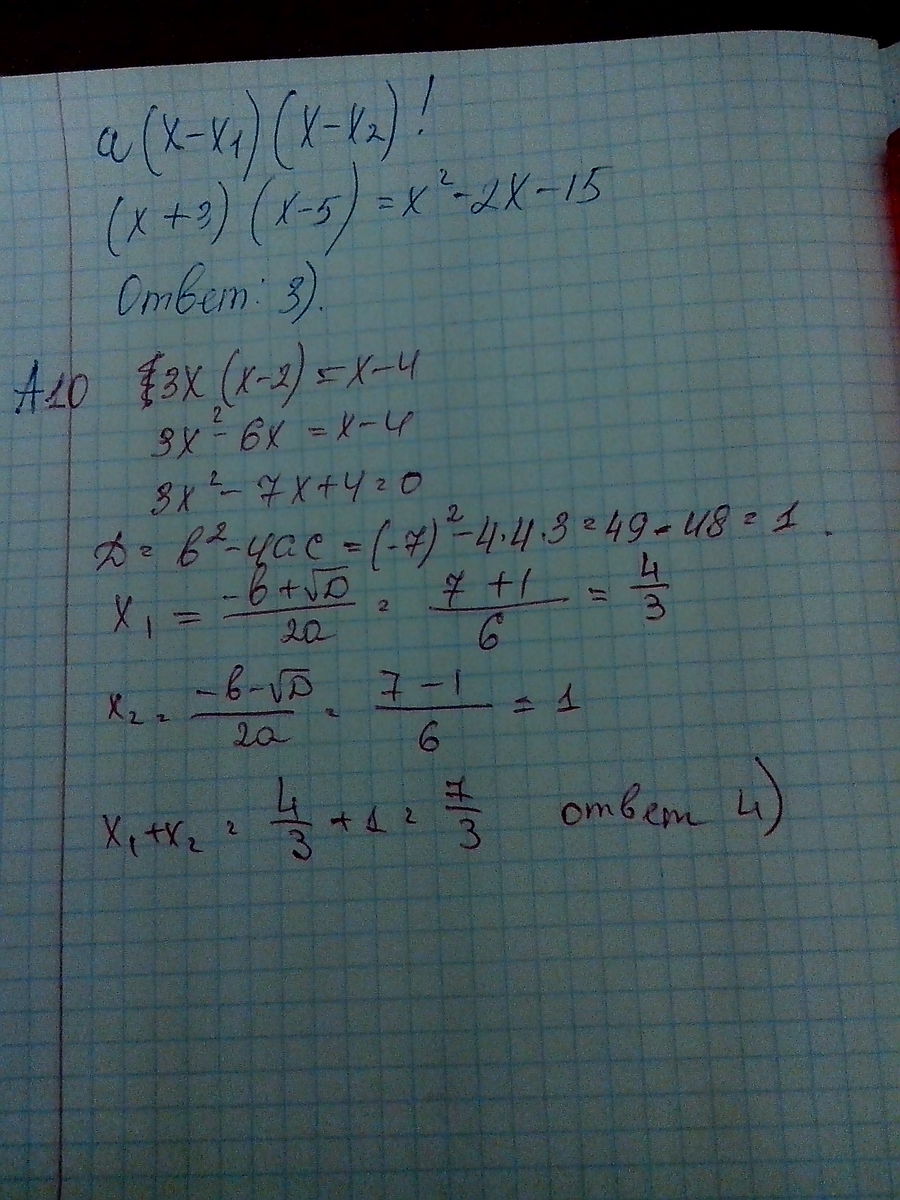 a(x-x₁)(x-x₂)!
(x+3)(x-5)=x²-2x-15
Ответ: 3).
А10 3x(x-2)=x-4
3x²-6x=x-4
3x²-7x+4=0
D=b²-4ac=(-7)²-4·4·3=49-48=1.
x₁=(-b+√D)/2a=(7+1)/6=4/3
x₂=(-b-√D)/2a=(7-1)/6=1
x₁+x₂=4/3+1=7/3 ответ 4)